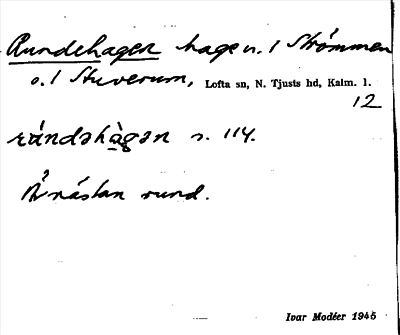 Rundehagen hage n. 1 Strömmen
o. 1 Stuverum, Lofta sn, N. Tjusts hd, Kalm. l.
12
rúndəhàgən s. 114.
Är nästan rund.
Ivar Modéer 1945